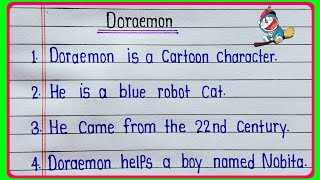 Doraemon
1. Doraemon is a Cartoon character.
2. He is a blue robot cat.
3. He came from the 22nd century.
4. Doraemon helps a boy named Nobita.